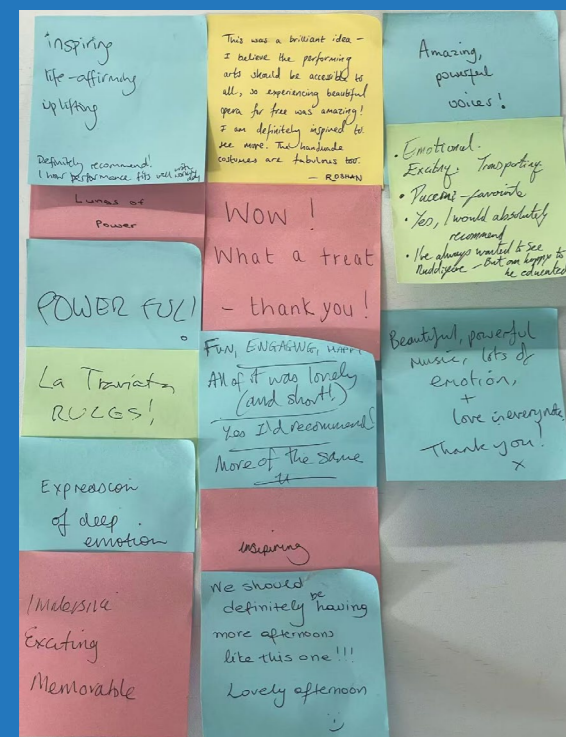 inspiring
life-affirming
uplifting
Definitely recommend!
I how performance fits well with
Lungs of
Power
POWERFUL!
La Traviata
RULES!
Expression
of deep
emotion
Immersive
Exciting
Memorable
This was a brilliant idea -
I believe the performing
arts should be accessible to
all, so experiencing beautiful
opera for free was amazing!
I am definitely inspired to
see more. The handmade
costumes are fabulous too.
- ROSHAN
WOW!
What a treat
- thank you!
FUN, ENGAGING,
All of it was lovely
(and short!)
Yes I'd recommend!
More of the same
inspiring
We should
definitely be having
more afternoons
like this one!!!
Lovely afternoon
Amazing,
powerful
voices!
• Emotional.
Exciting. Transporting.
• Puccini - favourite
• Yes, I would absolutely
recommend
• I've always wanted to see
- But am happy to
be educated
Beautiful, powerful
music, lots of
emotion,
+
love in every note.
Thank you!
x